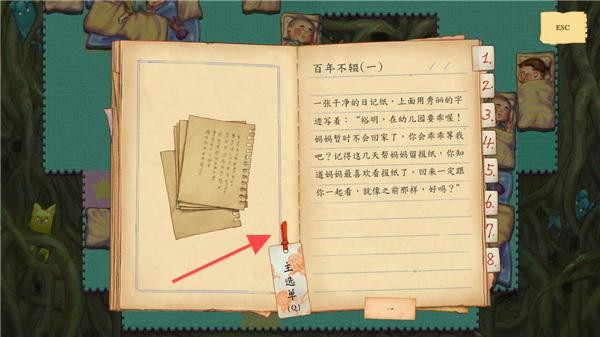 ESC
百年不辍(一)
一张干净的日记纸，上面用秀丽的字
迹写着：“裕明，在幼儿园要乖喔！
妈妈暂时不会回家了，你会乖乖等我
吧？记得这几天帮妈妈留报纸，你知
道妈妈最喜欢看报纸了。回来一定跟
你一起看，就像之前那样，好吗？”
1.
2.
3.
4.
5.
6.
7.
8.
主选单
(Q)
→